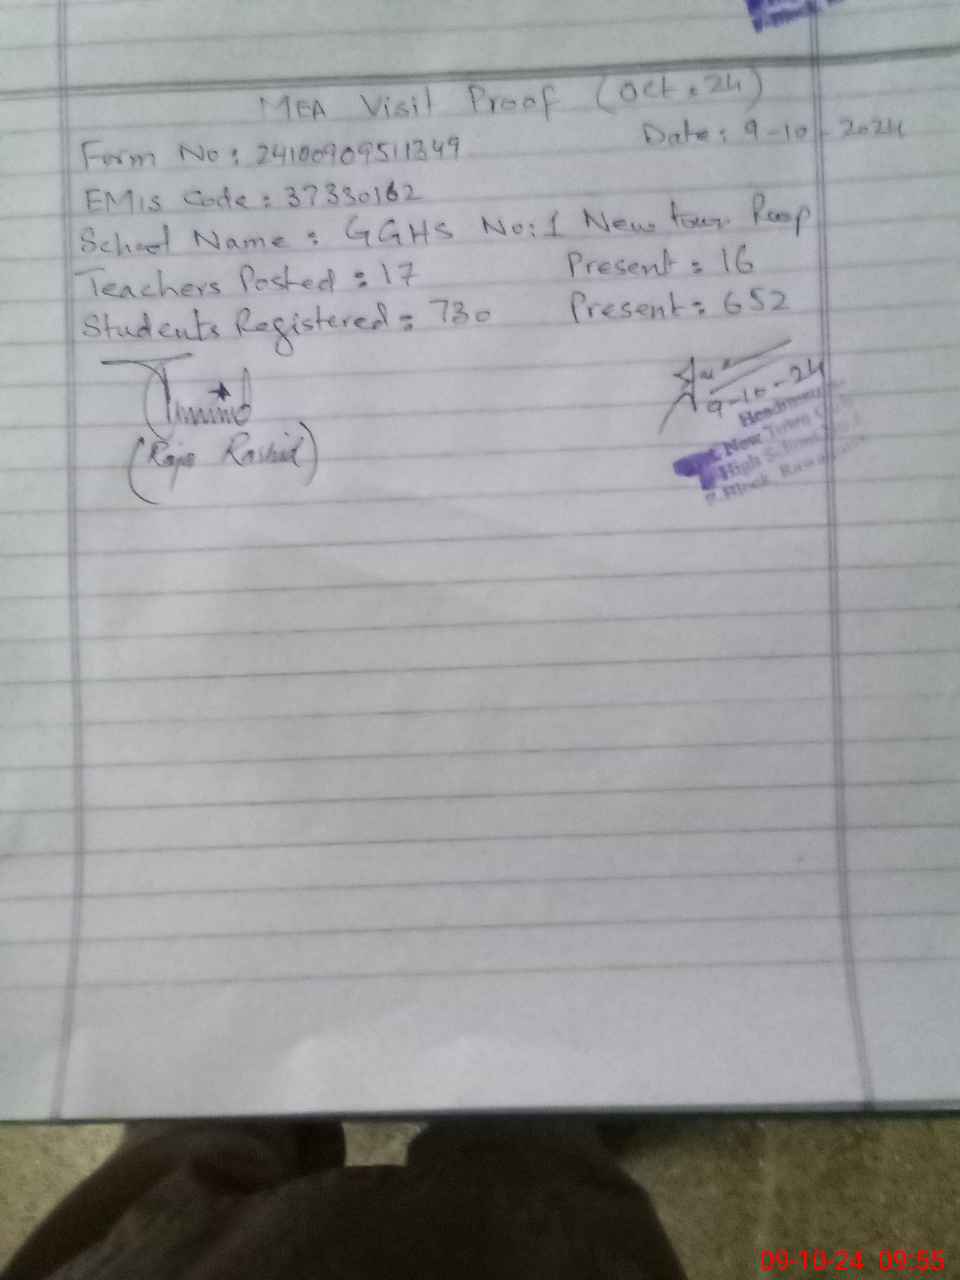 MEA Visit Proof (Oct. 24)
Date: 9-10-2024
Form No: 24100909511349
EMIS Code: 37330162
School Name: GGHS No:1 New town
Teachers Posted: 17 Present: 16
Students Registered: 730 Present: 652
9-10-24
(Raja Rashid)
Headmis
New Town
High School
Block
09-10-24 09:55